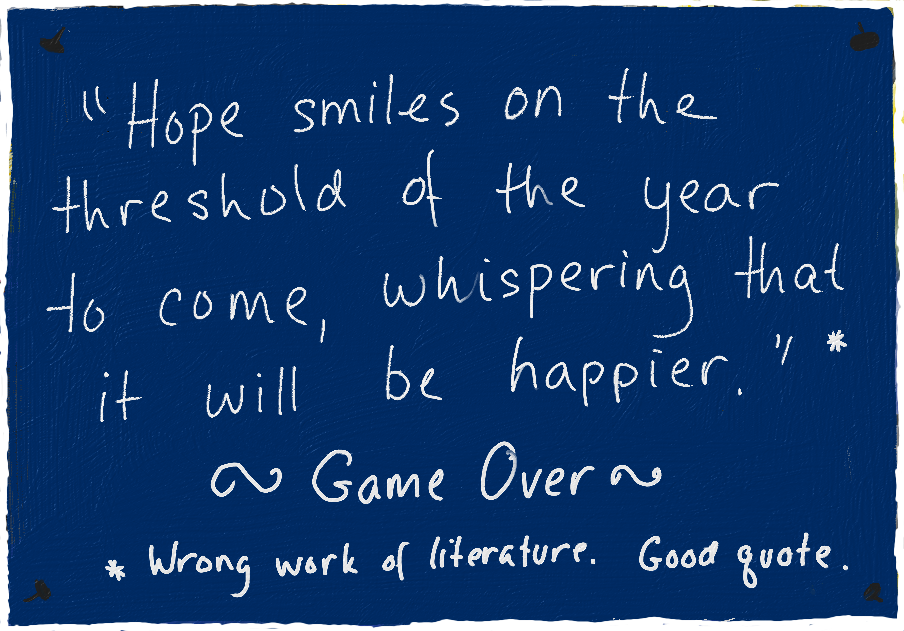 "Hope smiles on the
threshold of the year
to come, whispering that
it will be happier." *
~ Game Over ~
* Wrong work of literature. Good quote.